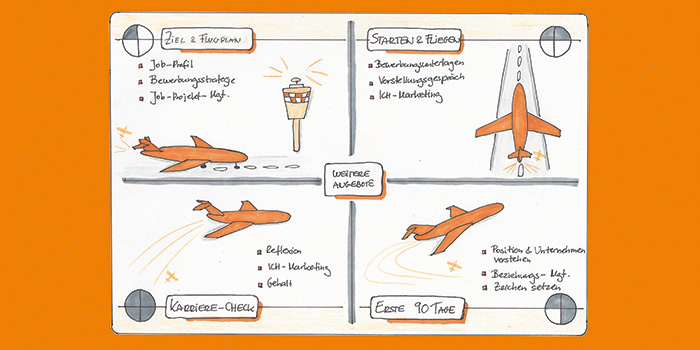 Ziel & Flugplan
Job-Profil
Bewerbungsstrategie
Job-Projekt-Mgt.
Starten & Fliegen
Bewerbungsunterlagen
Vorstellungsgespräch
ICH-Marketing
Weitere
Angebote
Reflexion
ICH-Marketing
Gehalt
Karriere-Check
Position & Unternehmen
verstehen
Beziehungs-Mgt.
Zeichen setzen
Erste 90 Tage